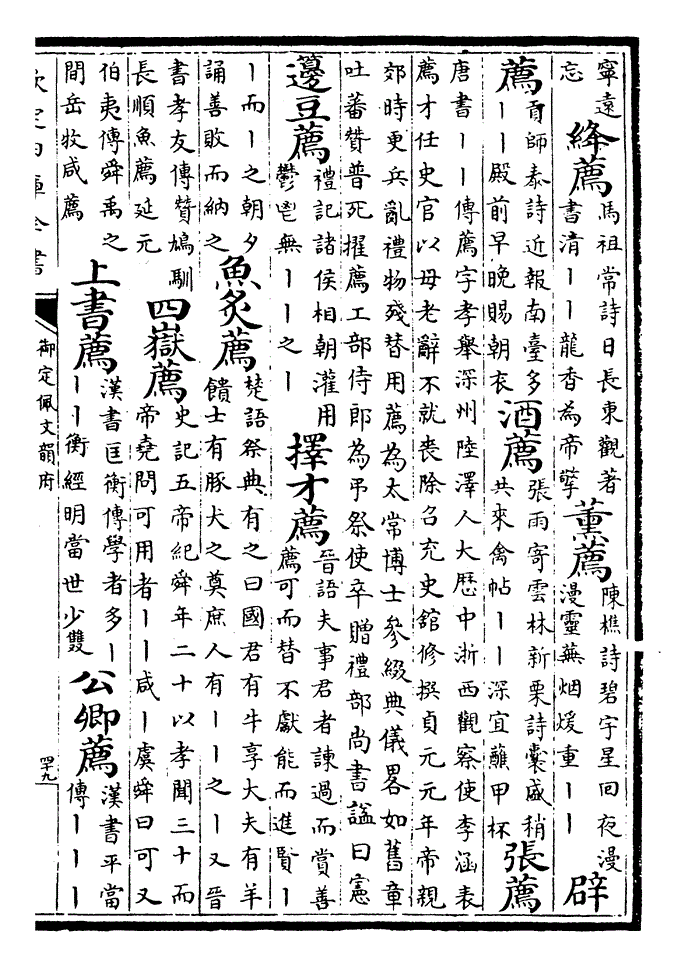 寧遠
忘
絳薦
馬祖常詩日長東觀著
書清丨丨龍香為帝擎
薰薦
陳樵詩碧宇星回夜漫
漫靈蕪烟煖重丨丨
辟
薦
貢師泰詩近報南臺多
丨丨殿前早晚賜朝衣
酒薦
張雨寄雲林新栗詩囊盛稍
共來禽帖丨丨深宜蘸甲杯
張薦
唐書丨丨傳薦字孝舉深州陸澤人大歷中浙西觀察使李涵表
薦才任史官以母老辭不就喪除召充史舘修撰貞元元年帝親
郊時更兵亂禮物殘替用薦為太常博士參綴典儀畧如舊章
吐蕃贊普死擢薦工部侍郎為弔祭使卒贈禮部尚書謚曰憲
籩豆薦
禮記諸侯相朝灌用
鬱鬯無丨丨之丨
擇才薦
晉語夫事君者諫過而賞善
薦可而替不獻能而進賢丨
丨而丨之朝夕
誦善敗而納之
魚炙薦
楚語祭典有之曰國君有牛享大夫有羊
饋士有豚犬之奠庶人有丨丨之丨又晉
書孝友傳贊鳩馴
長順魚薦延元
四嶽薦
史記五帝紀舜年二十以孝聞三十而
帝堯問可用者丨丨咸丨虞舜曰可又
伯夷傳舜禹之
間岳牧咸薦
上書薦
漢書匡衡傳學者多丨
丨丨衡經明當世少雙
公卿薦
漢書平當
傳丨丨丨
欽定四庫全書
御定佩文韻府
四十九